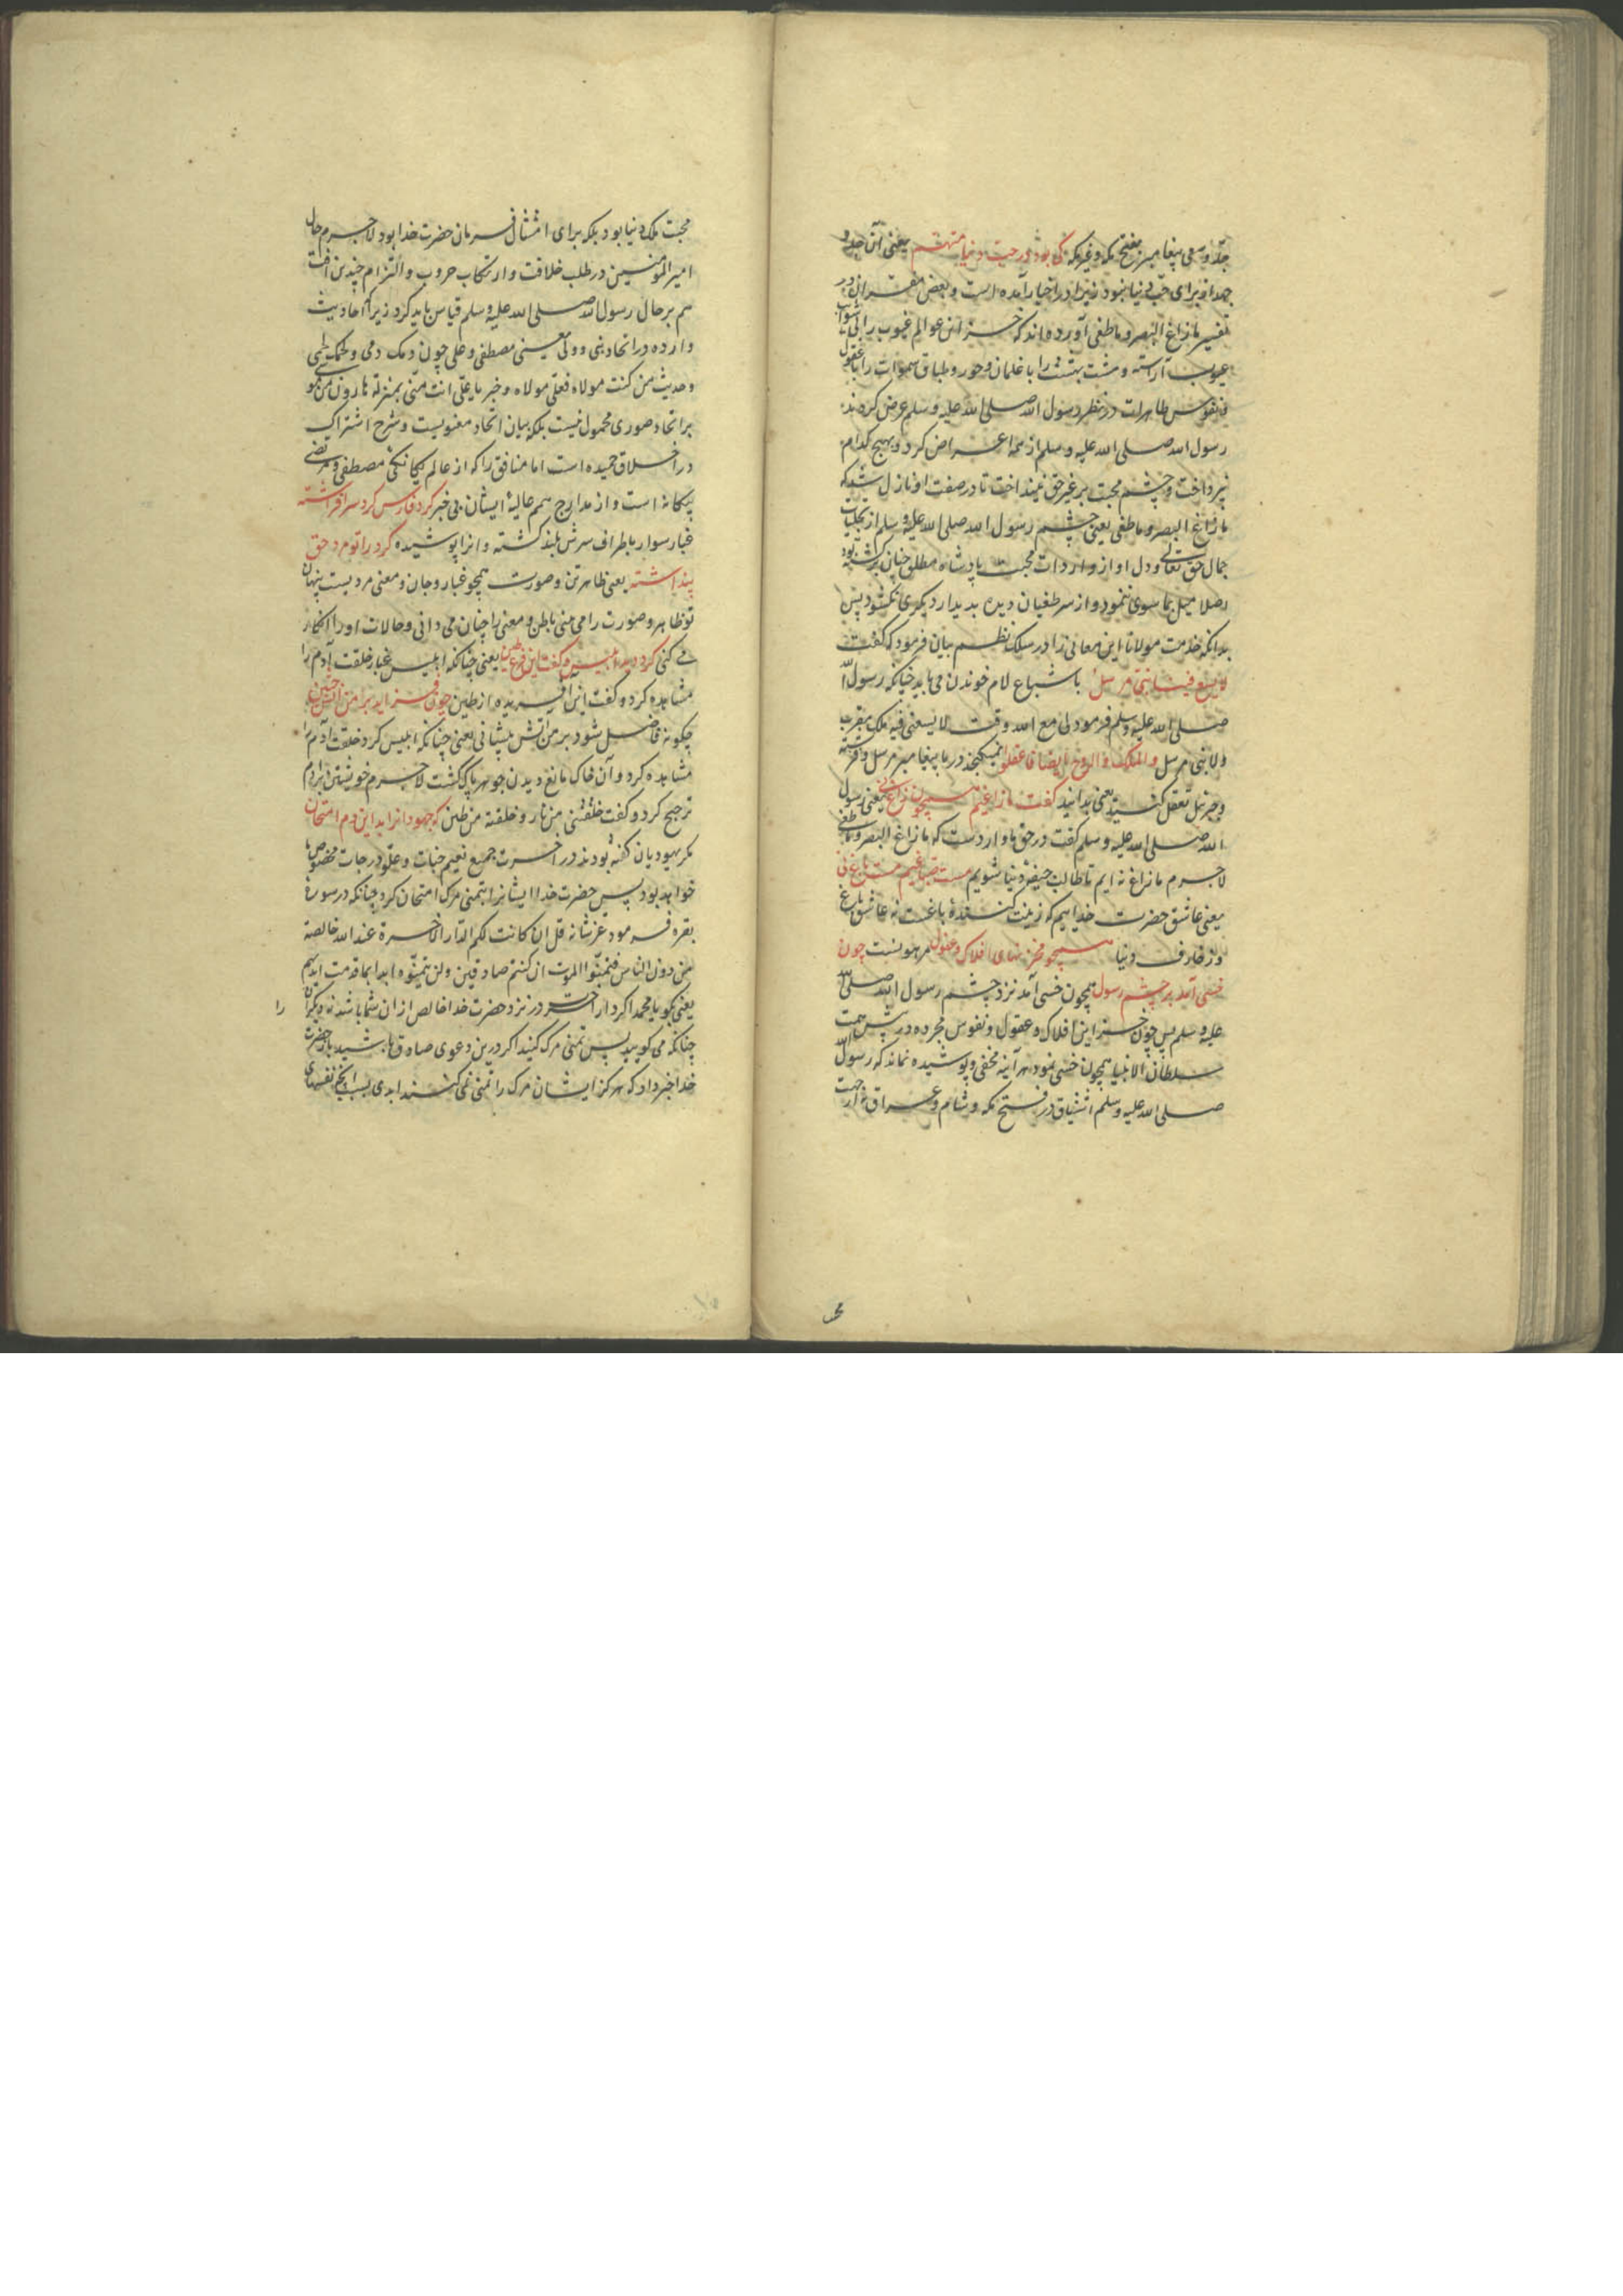 جد او سعی پیغامبر بفتح مکه و غیر مکه کی بود در حب دنیا متهم یعنی آن جد و
جهد او برای حب دنیا نبود زیرا در اخبار آمده است و بعض مفسران در
تفسیر ما زاغ البصر و ما طغی آورده‌اند که خزاین عوالم غیوب را بی شوایب
عیوب آراسته و هشت بهشت را با غلمان و حور و طباق سموات را با عقول
و نفوس طاهرات در نظر رسول الله صلی الله علیه وسلم عرض کردند
رسول الله صلی الله علیه وسلم از همه اعراض کرد و بهیچ کدام
نپرداخت و چشم محبت بر غیر حق نینداخت تا در صفت او نازل شد که
ما زاغ البصر و ما طغی یعنی چشم رسول الله صلی الله علیه وسلم از تجلیات
جمال حق تعالی و دل او از واردات محبت پادشاه مطلق چنان پر گشته بود
اصلا میل بما سوی ننمود و از سر طغیان دیده بدیدار دیگری نگشود پس
بدانکه خدمت مولانا این معانی را در سلک نظم بیان فرمود که گفت
لا یسع فینا نبی مرسل باشباع لام خوندن می باید چنانکه رسول الله
صلی الله علیه وسلم فرمود لی مع الله وقت لا یسعنی فیه ملک مقرب
ولا نبی مرسل والملک والروح ایضا فاعقلوا نمیکنجد در ما پیغامبر مرسل و فرشته
و جبرئیل تعقل کنید یعنی بدانید گفت ما زاغیم همچون زاغ نی یعنی رسول
الله صلی الله علیه وسلم گفت در حق ما وارد ست که ما زاغ البصر و ما طغی
لاجرم ما زاغ نه ایم تا طالب جیفه دنیا شویم مست صباغیم مست باغ نی
یعنی عاشق حضرت خداییم که زینت کننده باغست نه عاشق باغ
و زخارف دنیا همچو مخزنهای افلاک و عقول
خسی آمد بر چشم رسول همچون خسی آمد نزد چشم رسول الله صلی الله
علیه وسلم پس چون خزاین افلاک و عقول و نفوس مجرده در پیش همت
سلطان الانبیا همچون خسی نمود هر آینه مخفی و پوشیده نماند که رسول الله
صلی الله علیه وسلم اشتیاق در فتح مکه و شام و عراق نه از جهت
محبت ملک دنیا بود بلکه برای امتثال فرمان حضرت خدا بود لاجرم حال
امیر المومنین در طلب خلافت و ارتکاب حروب و التزام چندین آفت
هم بر حال رسول الله صلی الله علیه وسلم قیاس باید کرد زیرا که احادیث
وارده در اتحاد نبی و ولی یعنی مصطفی و علی چون دمک دمی و لحمک لحمی
و حدیث من کنت مولاه فعلی مولاه و خبر یا علی انت منی بمنزلة هارون من مو
بر اتحاد صوری محمول نیست بلکه بیان اتحاد معنویست و شرح اشتراک
در اخلاق حمیده است اما منافق را که از عالم یکانکی مصطفی و مرتضی
بیکانه است و از مدارج همم عالیهٔ ایشان بی خبر گرد فارس گرد سر افراشته
غبار سوار باطراف سرش بلند گشته و انرا پوشیده گرد را تو مرد حق
پنداشته یعنی ظاهر تن و صورت همچو غبار و جان و معنی مردیست پنهان
تو ظاهر و صورت را می بینی باطن و معنی را چنان می دانی و حالات او را انکار
می کنی گرد دید ابلیس و گفت این فرع طین یعنی چنانکه ابلیس غبار خلقت آدم را
مشاهده کرد و گفت این آفریده از طین چون فزاید بر من آتش جبین
چکونه فاضل شود بر من آتش پیشانی یعنی چنانکه ابلیس گرد خلقت آدم را
مشاهده کرد و آن خاک مانع دیدن جوهر پاک گشت لاجرم خویشتن را بر آدم
ترجیح کرد و گفت خلقتنی من نار و خلقته من طین که جهودانرا بد این دم امتحان
مکر یهودیان گفته بودند در آخرت جمیع نعیم جنات و علو درجات مخصوص ما
خواهد بود پس حضرت خدا ایشانرا بتمنی مرک امتحان کرد چنانکه در سورهٔ
بقره فرمود عز شانه قل ان کانت لکم الدار الآخرة عند الله خالصة
من دون الناس فتمنوا الموت ان کنتم صادقین ولن یتمنوه ابدا بما قدمت ایدیهم
یعنی بکو یا محمد اکر دار آخرت در نزد حضرت خدا خالص از ان شما باشد نه دیکران را
چنانکه می کویید پس تمنی مرک کنید اکر درین دعوی صادق باشید باز حضرت
خدا خبر داد که هرکز ایشان مرک را تمنی نمی کنند ابدی بسبب آنچه نفسهای